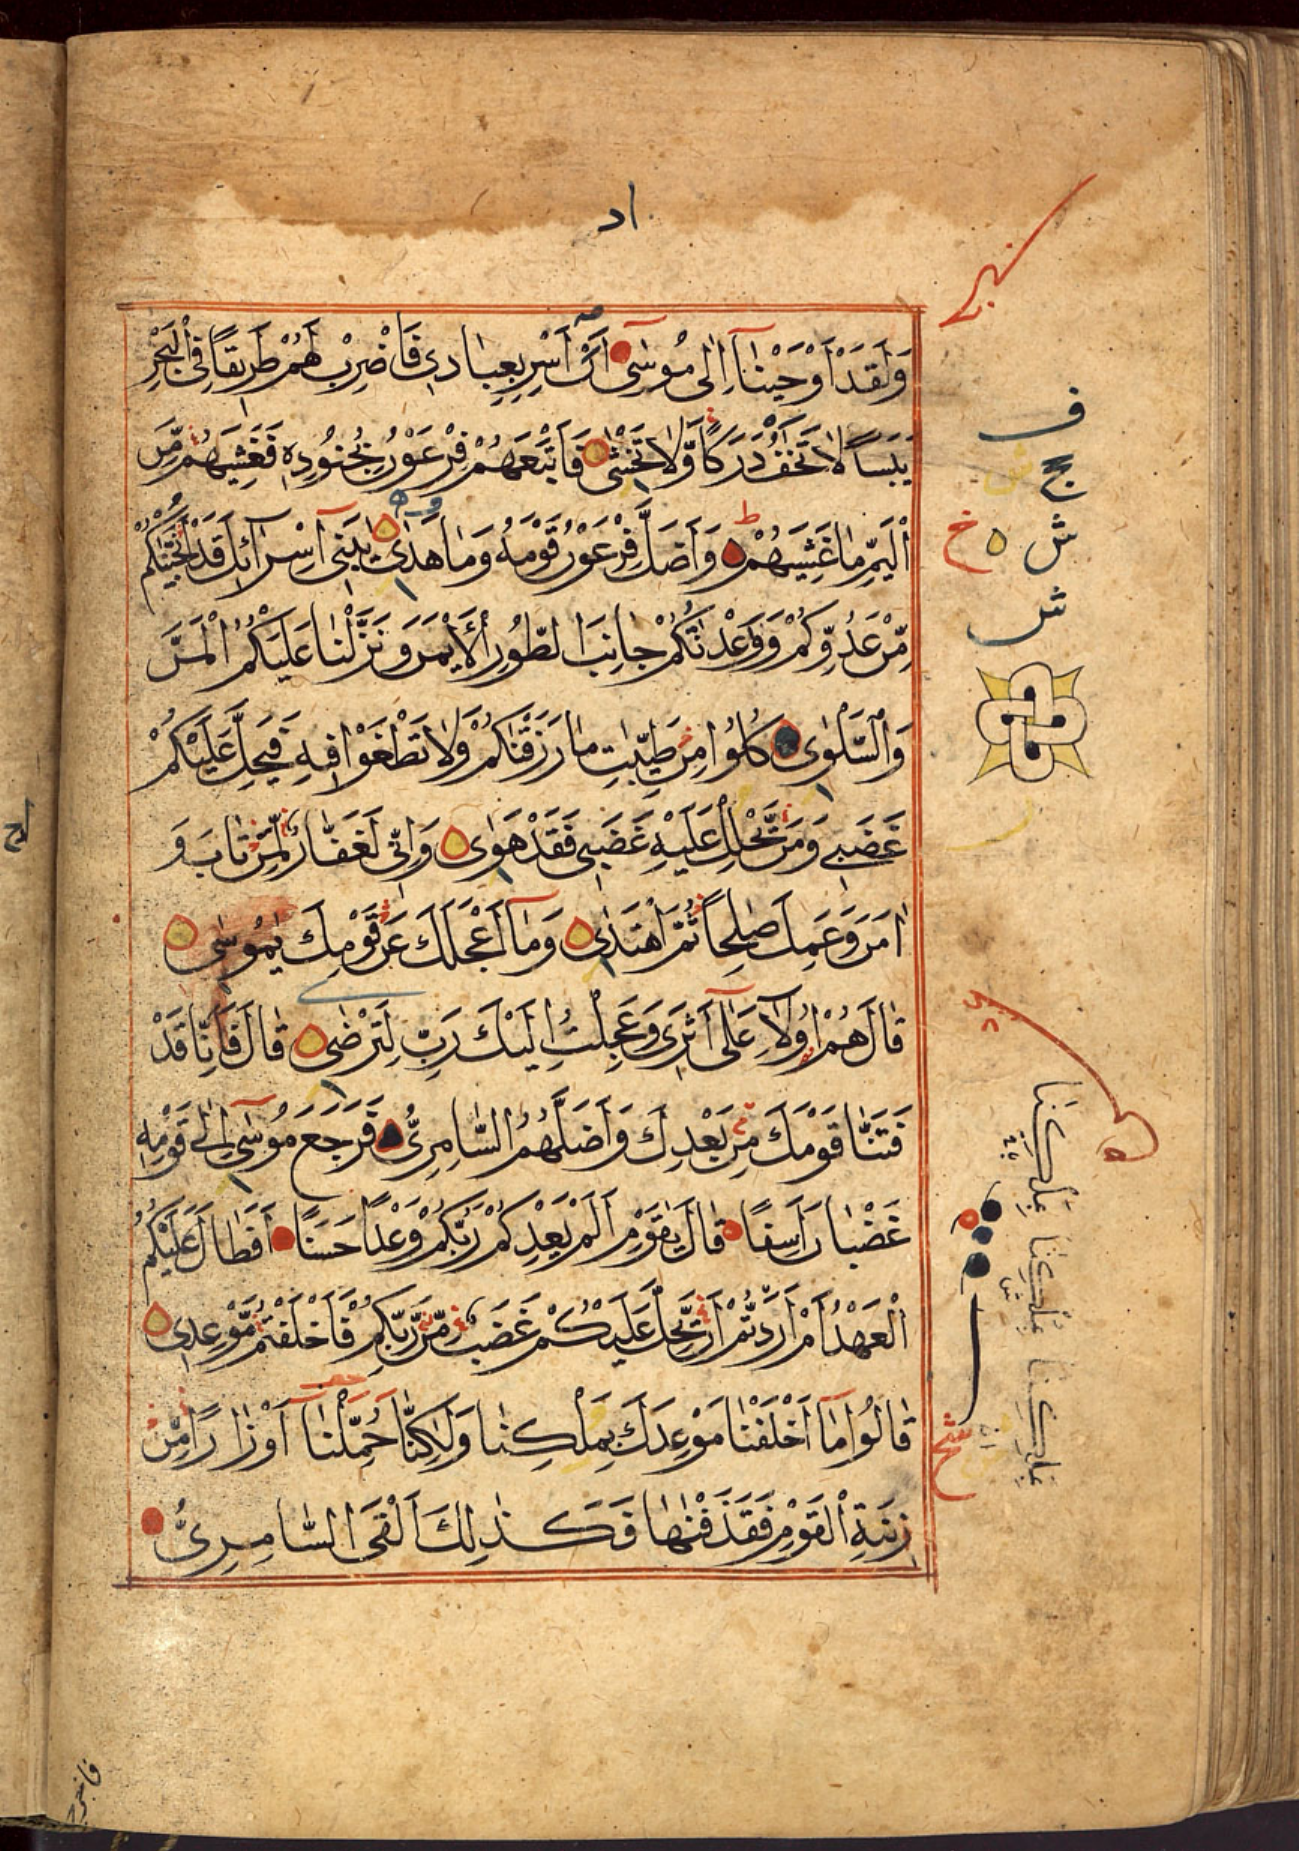 اد
وَلَقَدْ اَوْحَيْنَآ اِلٰى مُوسٰٓى اَنْ اَسْرِ بِعِبَادِى فَاضْرِبْ لَهُمْ طَرِيقًا فِى الْبَحْرِ
يَبَسًا لَا تَخٰفُ دَرَكًا وَّلَا تَخْشٰى فَاَتْبَعَهُمْ فِرْعَوْنُ بِجُنُودِهٖ فَغَشِيَهُمْ مِّنَ
الْيَمِّ مَا غَشِيَهُمْ وَاَضَلَّ فِرْعَوْنُ قَوْمَهٗ وَمَا هَدٰى يٰبَنِىٓ اِسْرَآئِلَ قَدْ اَنْجَيْنٰكُمْ
مِّنْ عَدُوِّكُمْ وَوٰعَدْنٰكُمْ جَانِبَ الطُّورِ الْاَيْمَنَ وَنَزَّلْنَا عَلَيْكُمُ الْمَنَّ
وَالسَّلْوٰى كُلُوا مِنْ طَيِّبٰتِ مَا رَزَقْنٰكُمْ وَلَا تَطْغَوْا فِيهِ فَيَحِلَّ عَلَيْكُمْ
غَضَبِى وَمَنْ يَّحْلِلْ عَلَيْهِ غَضَبِى فَقَدْ هَوٰى وَاِنِّى لَغَفَّارٌ لِّمَنْ تَابَ وَ
اٰمَنَ وَعَمِلَ صٰلِحًا ثُمَّ اهْتَدٰى وَمَآ اَعْجَلَكَ عَنْ قَوْمِكَ يٰمُوسٰى
قَالَ هُمْ اُولَآءِ عَلٰٓى اَثَرِى وَعَجِلْتُ اِلَيْكَ رَبِّ لِتَرْضٰى قَالَ فَاِنَّا قَدْ
فَتَنَّا قَوْمَكَ مِنْ بَعْدِكَ وَاَضَلَّهُمُ السَّامِرِىُّ فَرَجَعَ مُوسٰٓى اِلٰى قَوْمِهٖ
غَضْبَانَ اَسِفًا قَالَ يٰقَوْمِ اَلَمْ يَعِدْكُمْ رَبُّكُمْ وَعْدًا حَسَنًا اَفَطَالَ عَلَيْكُمُ
الْعَهْدُ اَمْ اَرَدتُّمْ اَنْ يَّحِلَّ عَلَيْكُمْ غَضَبٌ مِّنْ رَّبِّكُمْ فَاَخْلَفْتُمْ مَّوْعِدِى
قَالُوا مَآ اَخْلَفْنَا مَوْعِدَكَ بِمَلْكِنَا وَلٰكِنَّا حُمِّلْنَآ اَوْزَارًا مِّنْ
زِينَةِ الْقَوْمِ فَقَذَفْنٰهَا فَكَذٰلِكَ اَلْقَى السَّامِرِىُّ
ف
ج
ش
خ ش